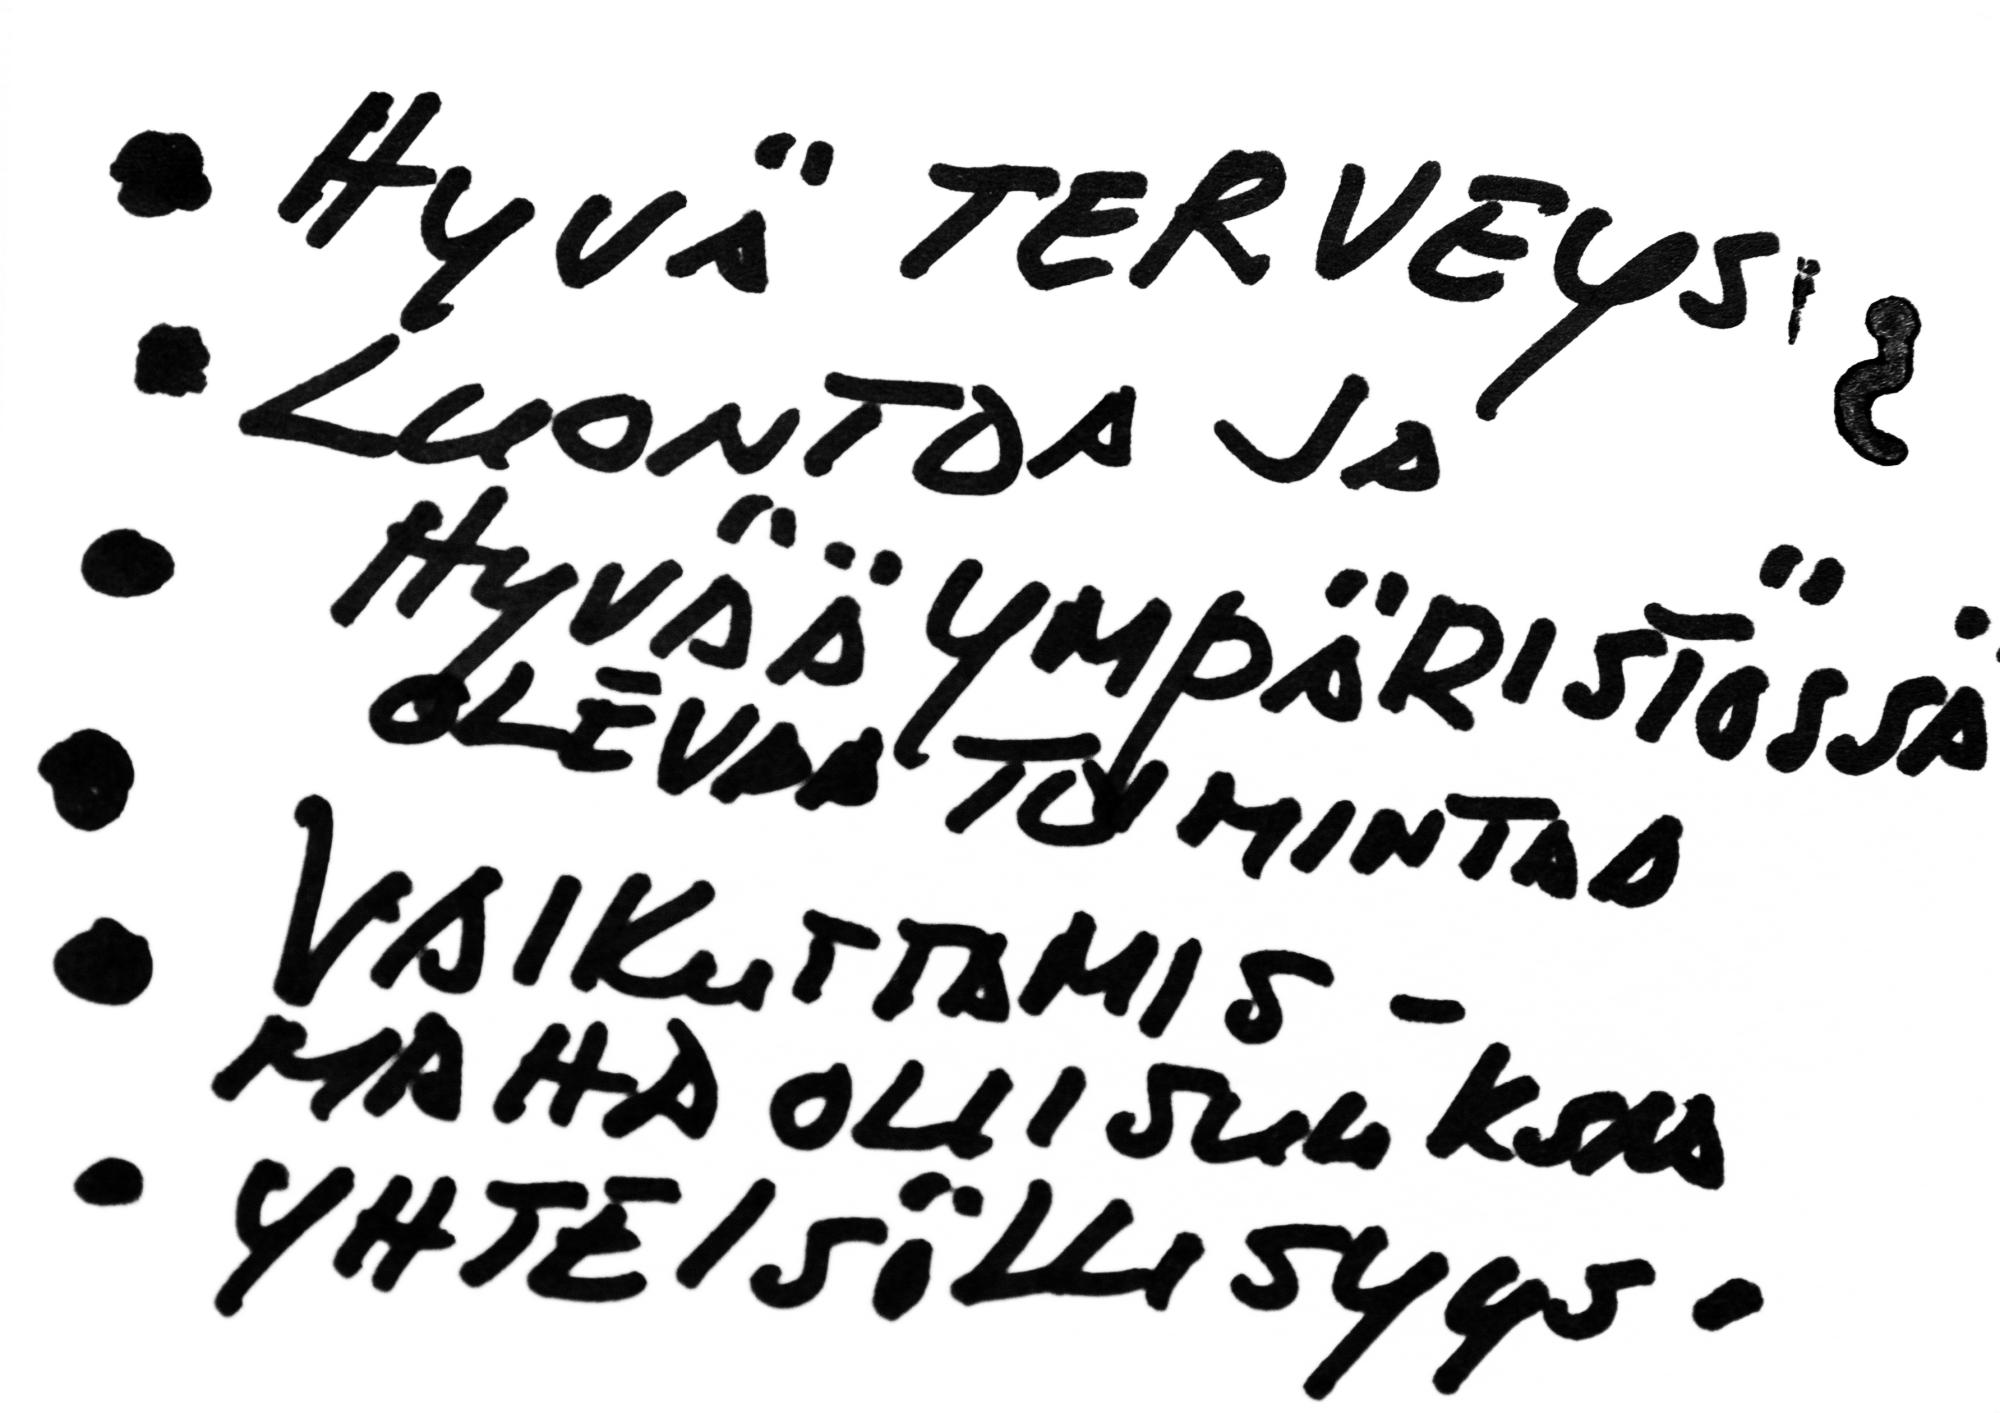 • HYVÄ TERVEYS
• LUONTOA JA
• HYVÄÄ YMPÄRISTÖSSÄ
• OLEVAA TOIMINTAA
• VAIKUTTAMIS-
MAHDOLLISUUKSIA
• YHTEISÖLLISYYS.